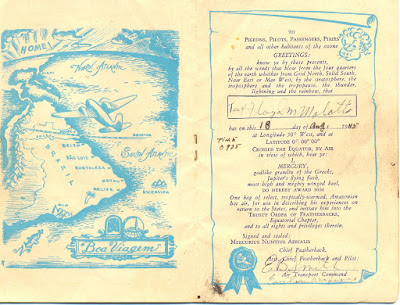 HOME
North Atlantic
South Atlantic
BELEM
SAO LUIZ
FORTALEZA
NATAL
RECIFE
ASCENSION
BRAZIL
Boa Viagem
TO
PIGEONS, PILOTS, PASSENGERS, PIXIES
and all other habitants of the ozone
GREETINGS:
know ye by these presents,
by all the winds that blow from the four quarters
of the earth whether from Grid North, Solid South,
Near East or Mae West, by the stratosphere, the
troposphere and the tropopause, the thunder,
lightning and the rainbow, that
has on this 18 day of Aug 1945
at Longitude 50° West, and at
Time
0925
LATITUDE 0° 00' 00"
CROSSED THE EQUATOR, BY AIR
in view of which, hear ye:
I
MERCURY,
godlike grandson of the Greeks,
Jupiter's flying flash,
most high and mighty winged heel,
DO HEREBY AWARD HIM
One bag of select, tropically-warmed, Amazonian
hot air, for use in describing his experiences on
return to the States, and initiate him into the
TRUSTY ORDER OF FEATHERBACKS,
Equatorial Chapter,
and to all rights and privileges thereto.
Signed and sealed:
MERCURIUS NUNTIUS AERIALIS
Chief Featherback.
Asst. Chief Featherback and Pilot.
Air Transport Command